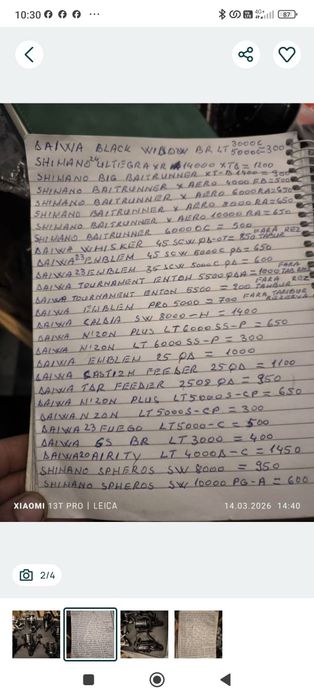 10:30
4G+
87
DAIWA BLACK WIDOW BR LT 3000C
5000C=300
SHIMANO ULTEGRA XR 14000 XTD = 1200
SHIMANO BIG BAITRUNNER XT-B 1400 = 900
SHIMANO BAITRUNNER X AERO 4000 RA=500
SHIMANO BAITRUNNER X AERO 6000RA=650
SHIMANO BAITRUNNER X AERO 8000 RA=650
SHIMANO BAITRUNNER X AERO 10000 RA=650
SHIMANO BAITRUNNER 6000 OC = 500
FARA REZ
DAIWA WHISKER 45 SCW QD-OT= 850 TABUR
DAIWA 23 EMBLEM 45 SCW 5000C QD = 650
DAIWA 23 EMBLEM 35 SCW 5000C QD = 600
FARA REZ
DAIWA TOURNAMENT ENTOH 5500 QDA=1000
DAIWA TOURNAMENT ENTOH 5500 = 800 TAMBUR
DAIWA EMBLEM PRO 5000 = 700 FARA TAMBUR
REZERVA
DAIWA CALDIA SW 8000-H = 1400
DAIWA N'ZON PLUS LT 6000 SS-P = 650
DAIWA N'ZON LT 6000 SS-P = 300
DAIWA EMBLEM 25 QD = 1000
DAIWA CASTIZM FEEDER 25QD = 1100
DAIWA TDR FEEDER 2508 QD = 950
DAIWA N'ZON PLUS LT5000S-CP = 650
DAIWA N'ZON LT5000S-CP = 300
DAIWA 23 FUEGO LT5000-C = 500
DAIWA GS BR LT 3000 = 400
DAIWA 20 AIRITY LT 4000D-C = 1450
SHIMANO SPHEROS SW 8000 = 950
SHIMANO SPHEROS SW 10000 PG-A = 600
XIAOMI 13T PRO | LEICA
14.03.2026 14:40
2/4